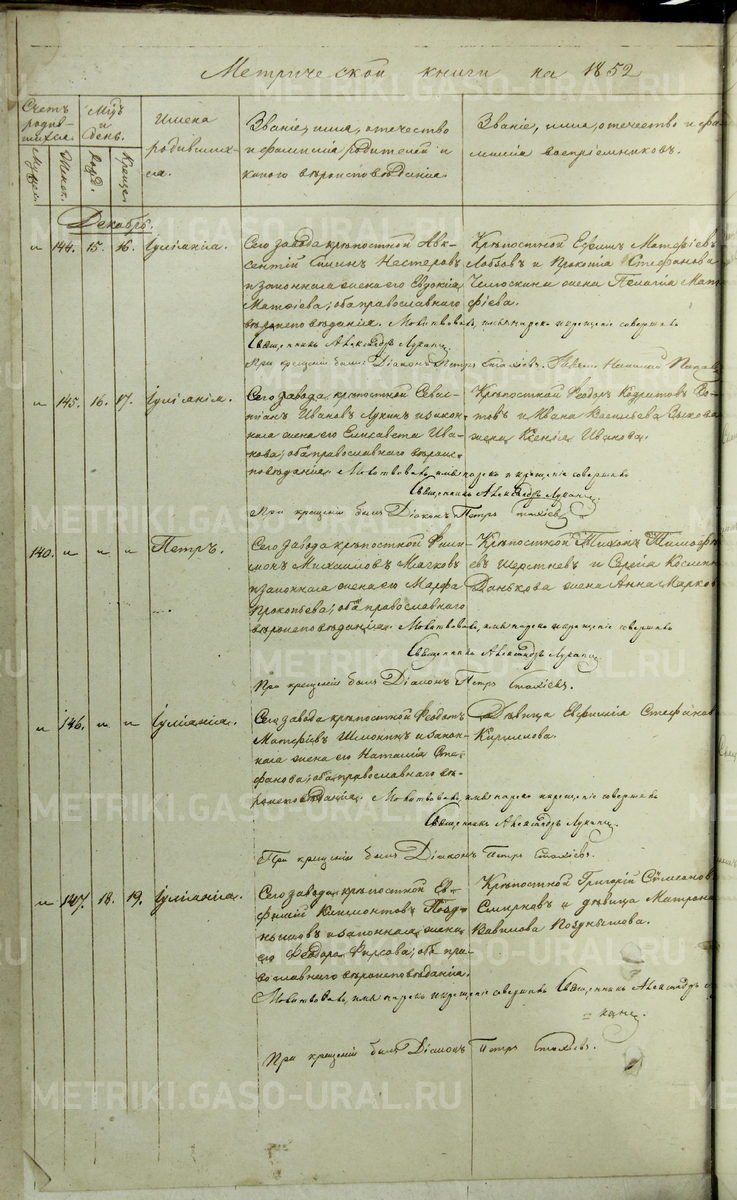 Метрической книги на 1852
Счетъ родив-шихся.
Мѣсъ и день.
Имена родивших-ся.
Званіе, имя, отечество и фамилія родителей и какого вѣроисповѣданія.
Званіе, имя, отечество и фамилія воспріемниковъ.
Мужес. Женск. Рожд. Крещен.
Декабрь.
" 144. 15. 16. Іуліанія.
Сего завода крѣпостной Авк-
сентій Нестеровъ
и законная жена его Евдокія
Матфіева; оба православнаго
вѣроисповѣданія. Молитвовалъ, имя нарекъ и крещеніе совершалъ
Священникъ Александръ Лукан
При крещеніи былъ Діаконъ Петръ
Крѣпостной Ефимъ Матфіевъ
Лобовъ и Прокопія Стефанова
Челюскина жена Пелагія Мат-
фіева.
" 145. 16. 17. Іуліанія.
Сего завода крѣпостной Севас-
тіанъ Ивановъ Лукинъ и закон-
ная жена его Елисавета Ива-
нова; оба православнаго вѣроис-
повѣданія. Молитвовалъ, имя нарекъ и крещеніе совершалъ
Священникъ Александръ Лукан
При крещеніи былъ Діаконъ Петръ
Крѣпостной Феодоръ
и Ивана Васильева
жена Ксенія Иванова.
140. " " " Петръ.
Сего завода крѣпостной Фили-
монъ Михаиловъ Мягковъ
и законная жена его Марфа
Прокопьева; оба православнаго
вѣроисповѣданія. Молитвовалъ, имя нарекъ и крещеніе совершалъ
Священникъ Александръ Лукан
При крещеніи былъ Діаконъ Петръ
Крѣпостной Тихонъ Тимофѣ-
евъ Шерстневъ и Сергія Космина
Данькова жена Анна Марков
" 146. " " Іуліанія.
Сего завода крѣпостной Феодотъ
Матфіевъ и закон-
ная жена его Наталія Сте-
фанова; оба православнаго вѣ-
роисповѣданія. Молитвовалъ, имя нарекъ и крещеніе совершалъ
Священникъ Александръ Лукан
При крещеніи былъ Діаконъ Петръ
Дѣвица Евфимія Стефанов
Кириллова.
" 147. 18. 19. Іуліанія.
Сего завода крѣпостной Ев-
фимій Позд-
нышовъ и законная жена
его Феодора Фирсова; оба пра-
вославнаго вѣроисповѣданія.
Молитвовалъ, имя нарекъ и крещеніе совершалъ Священникъ Александръ Лу-
кан
При крещеніи былъ Діаконъ Петръ
Крѣпостной Григорій Сѵмеонов
Смирновъ и дѣвица Матрона
Вавилова Позднышова.
METRIKI.GASO-URAL.RU